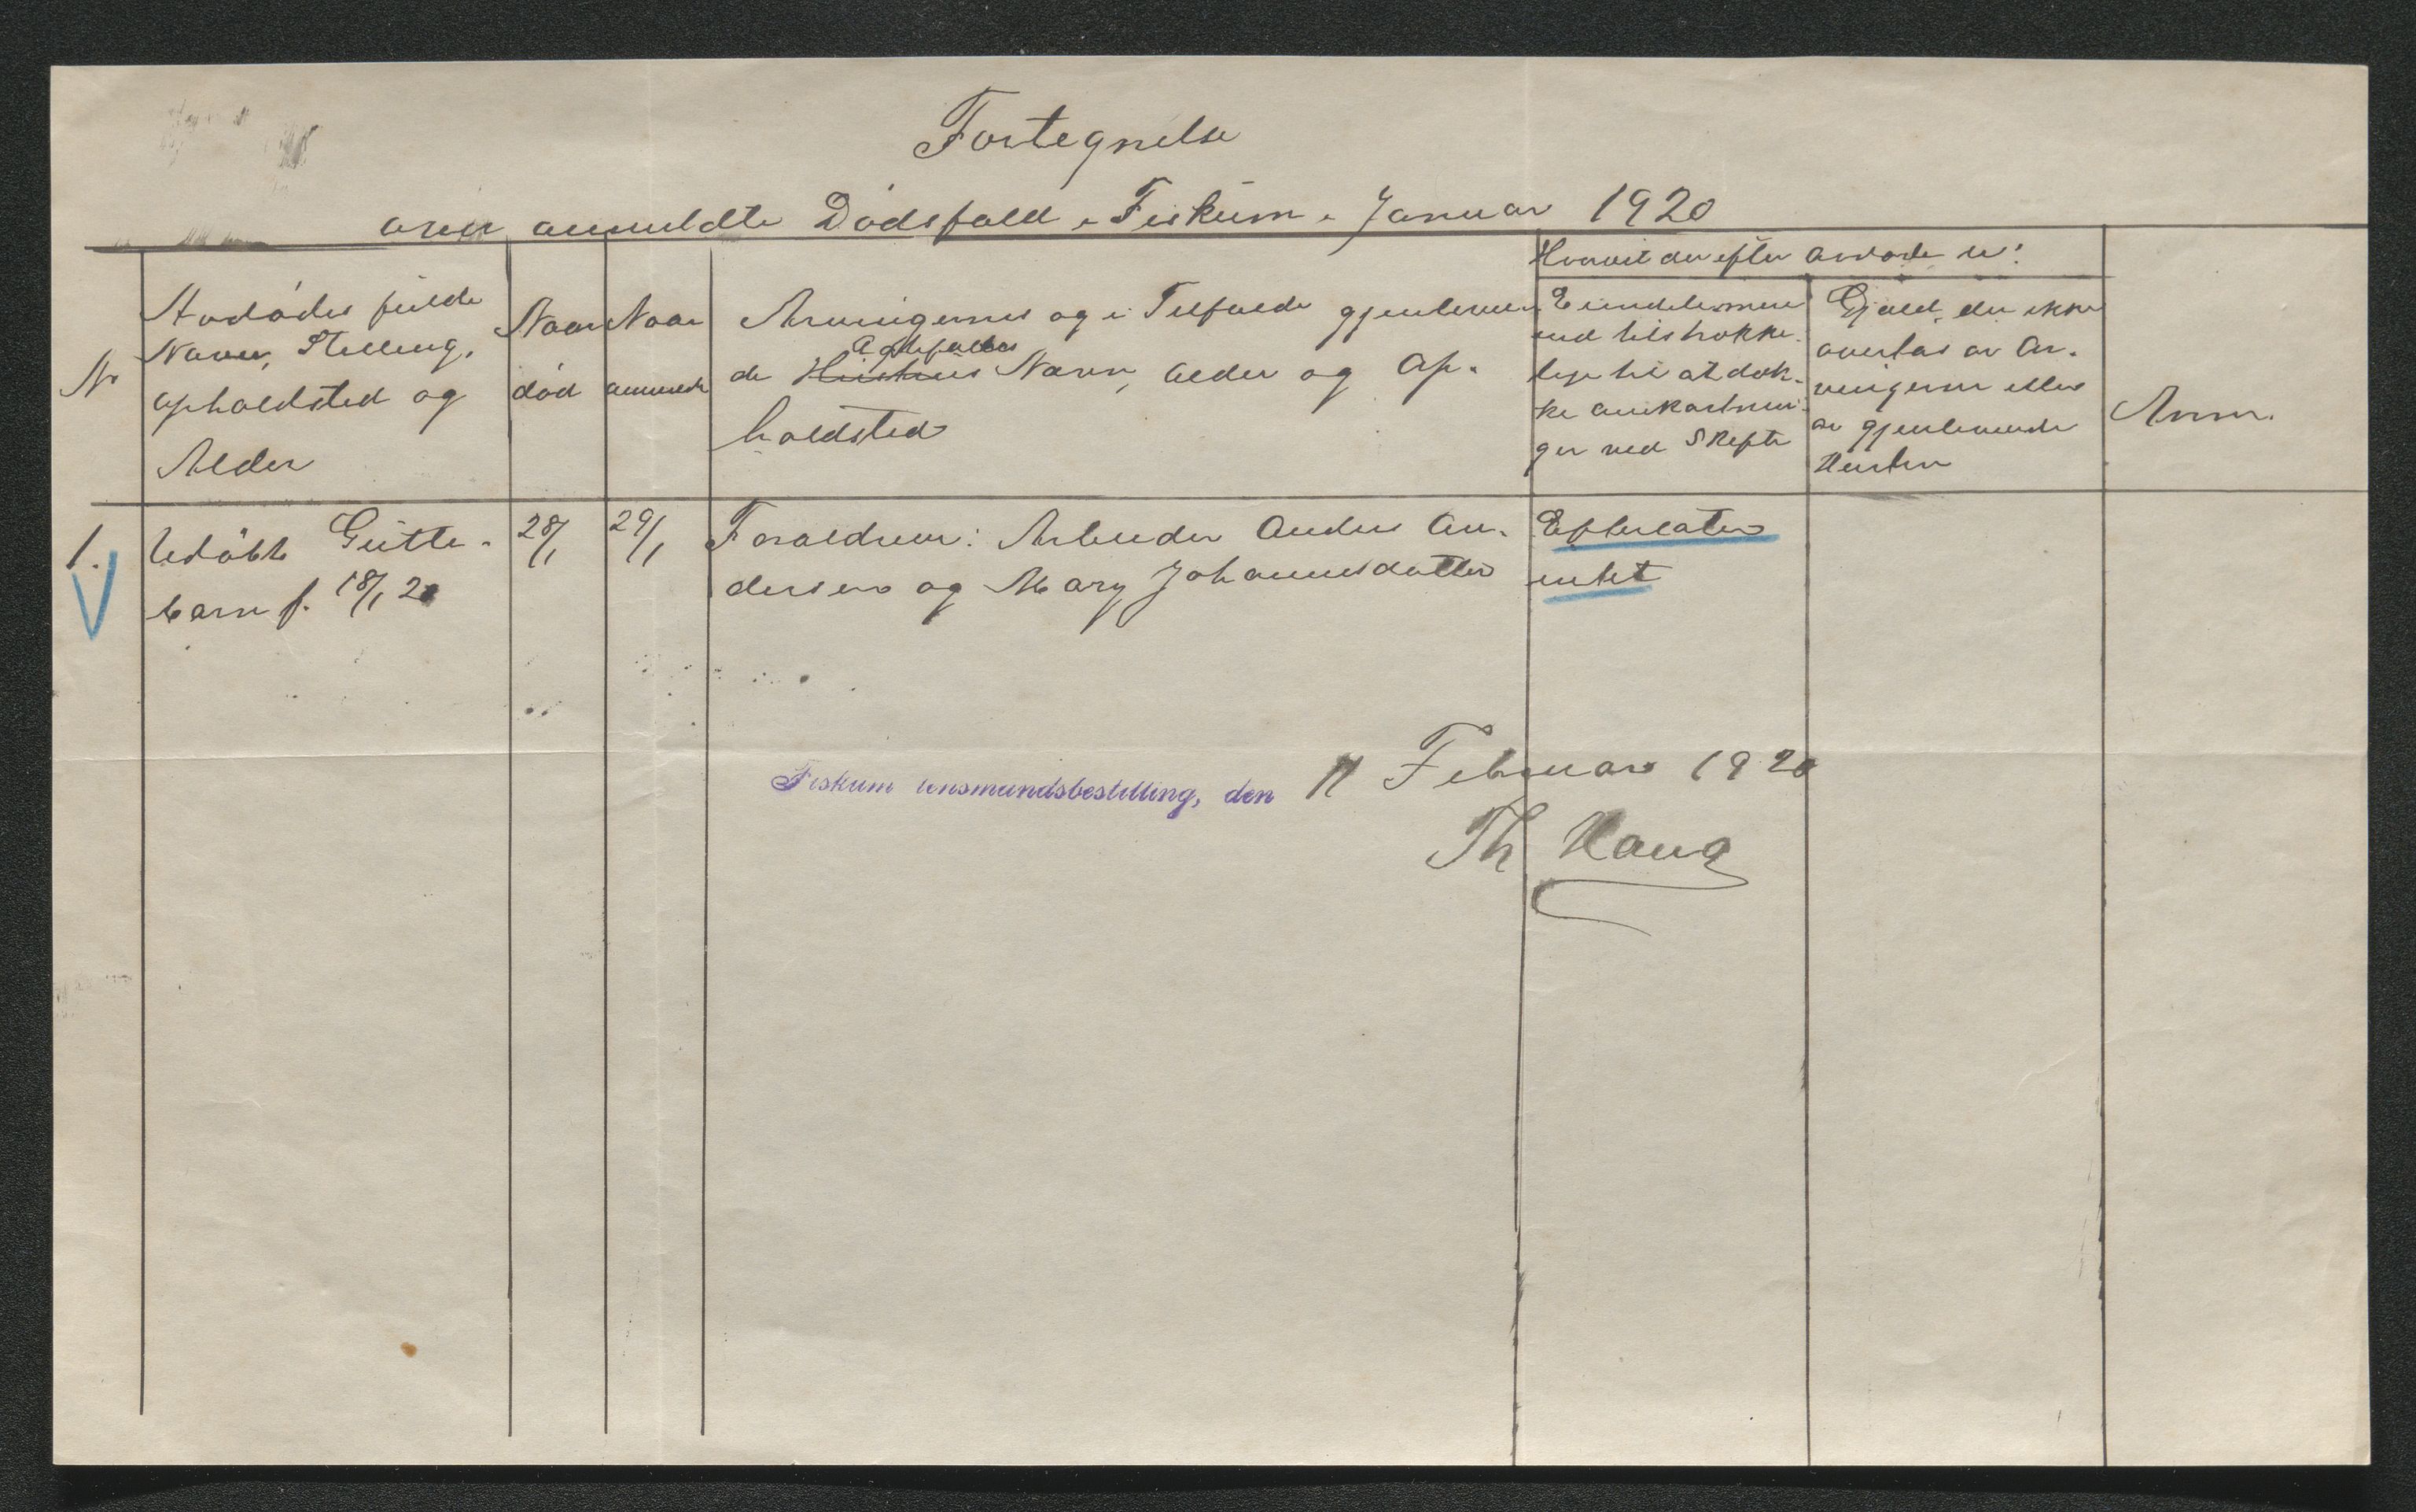 Fortegnelse
over anmeldte Dödsfald i Fiskum i Januar 1920
No
Avdödes fulde
Navn, Stilling,
opholdsted og
Alder
Naar
död
Naar
anmeldt
Arvingernes og i Tilfælde gjenleven
Ægtefælles
de Hustrus Navn, Alder og Op-
holdsted
Hvorvit der efter avdöde er:
Eiendel mere
end tilstrække-
lige til at dæk-
ke omkostnin-
ger ved Skifte
Gjæld, der ikke
overtas av Ar-
vingerne eller
av gjenlevende
Hustru
Anm.
1.
Udöbt Gutte-
barn f. 18/1 20
28/1
29/1
Forældrene: Arbeider Anders An-
dersen og Mary Johannesdatter
Efterlater
intet
Fiskum lensmandsbestilling, den 11 Februar 1920
Th Haug